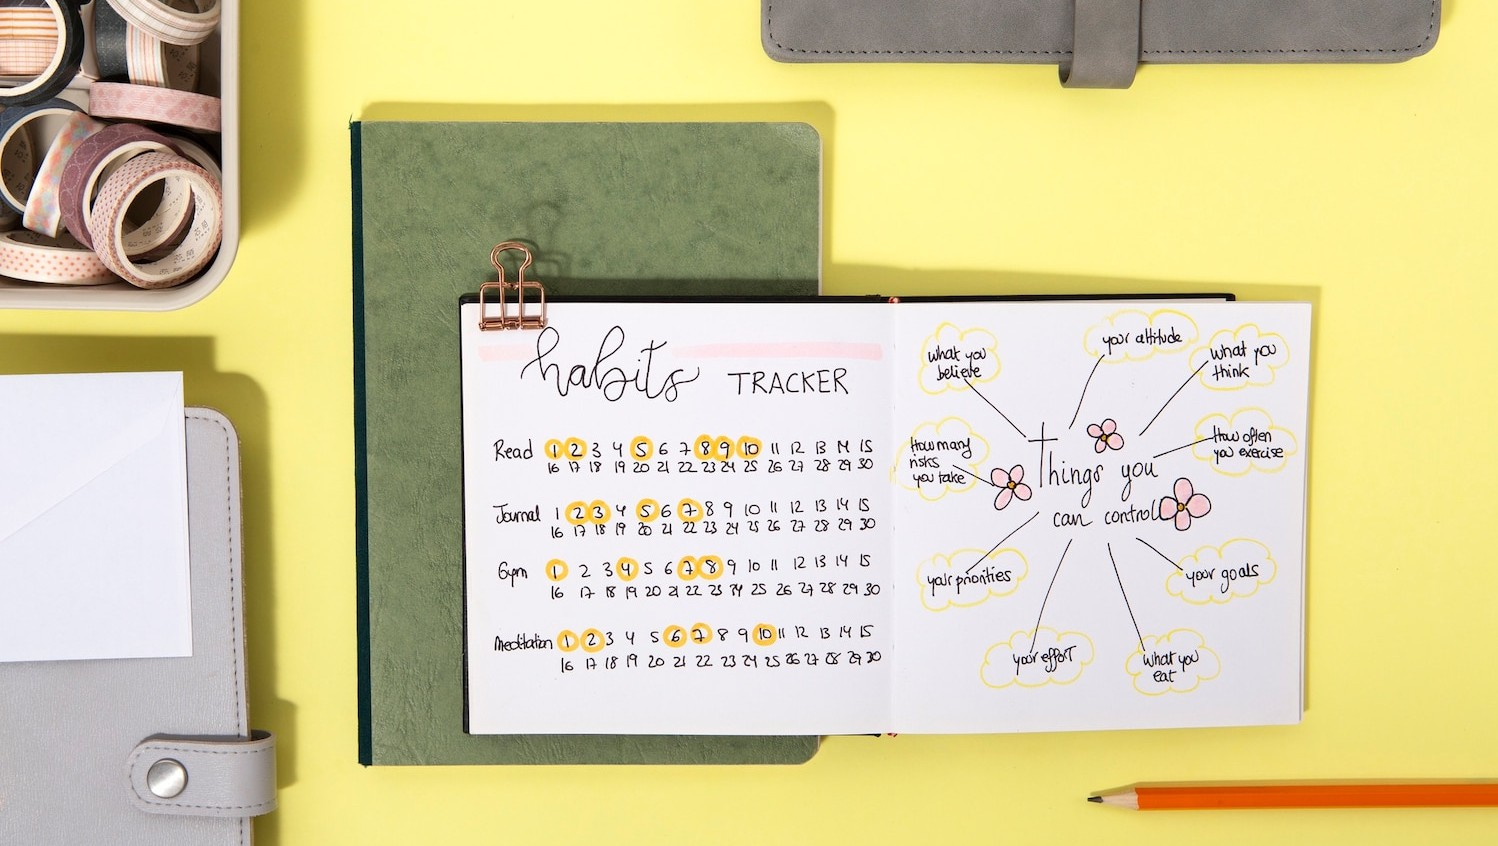 habits TRACKER
Read 1 2 3 4 5 6 7 8 9 10 11 12 13 14 15
16 17 18 19 20 21 22 23 24 25 26 27 28 29 30
Journal 1 2 3 4 5 6 7 8 9 10 11 12 13 14 15
16 17 18 19 20 21 22 23 24 25 26 27 28 29 30
Gym 1 2 3 4 5 6 7 8 9 10 11 12 13 14 15
16 17 18 19 20 21 22 23 24 25 26 27 28 29 30
Meditation 1 2 3 4 5 6 7 8 9 10 11 12 13 14 15
16 17 18 19 20 21 22 23 24 25 26 27 28 29 30
what you
believe
your attitude
What you
think
How many
risks
you take
Things you
can control
How often
you exercise
your priorities
your goals
your effort
What you
eat